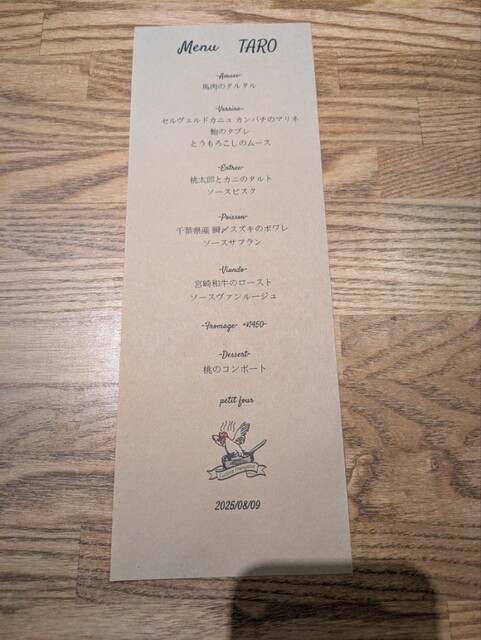 Menu TARO
-Amuse-
馬肉のタルタル
-Verrine-
セルヴェルドカニュ カンパチのマリネ
鮑のタブレ
とうもろこしのムース
-Entree-
桃太郎とカニのタルト
ソースビスク
-Poisson-
千葉県産 瞬〆スズキのポワレ
ソースサフラン
-Viande-
宮崎和牛のロースト
ソースヴァンルージュ
-Fromage- +¥1450-
-Dessert-
桃のコンポート
petit four
Cuisine Française
2025/08/09